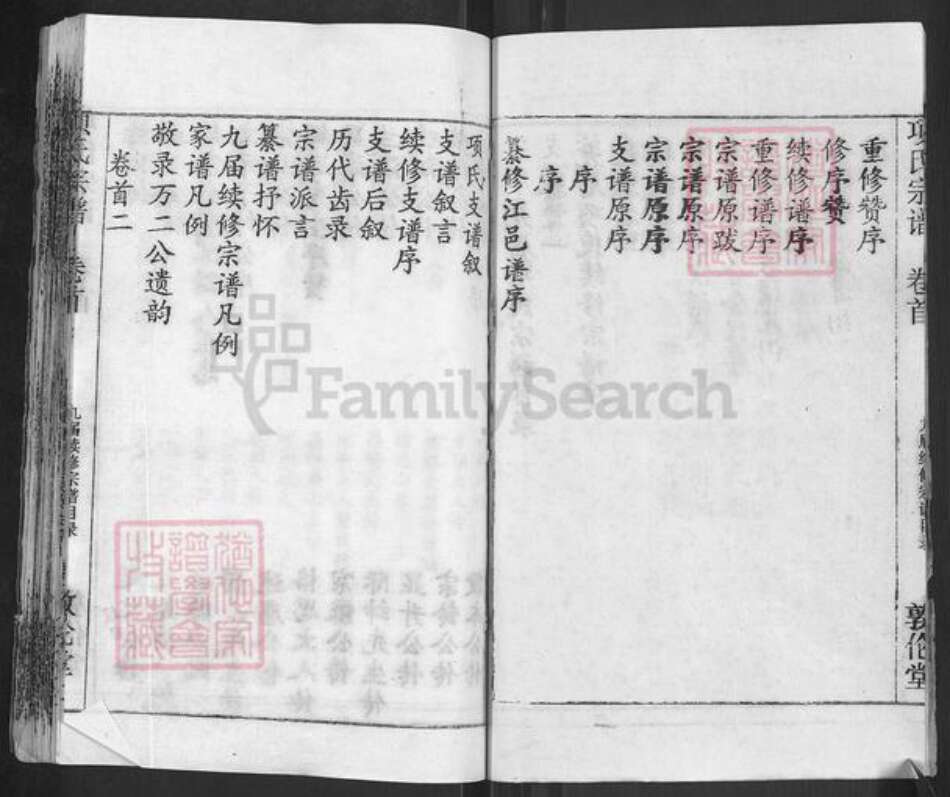 项氏宗谱 卷首
敦伦堂
重修赞序
修序赞
续修谱序
重修谱序
宗谱原跋
宗谱原序
宗谱原序
支谱原序
序
序
纂修江邑谱序
项氏支谱叙
支谱叙言
续修支谱序
支谱后叙
历代齿录
宗谱派言
纂谱抒怀
九届续修宗谱凡例
家谱凡例
敬录万二公遗韵
卷首二
九届续修宗谱目录
FamilySearch